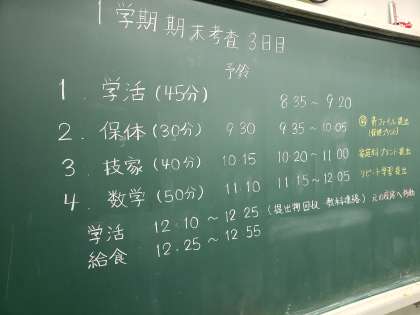 1学期 期末考査 3日目
予鈴
1. 学活 (45分) 8:35~9:20
2. 保体 (30分) 9:30 9:35~10:05 青ファイル提出
3. 技家 (40分) 10:15 10:20~11:00 家庭科プリント提出
4. 数学 (50分) 11:10 11:15~12:05 リピート学習提出
学活 12:10~12:25 (提出物回収 教科連絡) 元の座席へ移動
給食 12:25~12:55